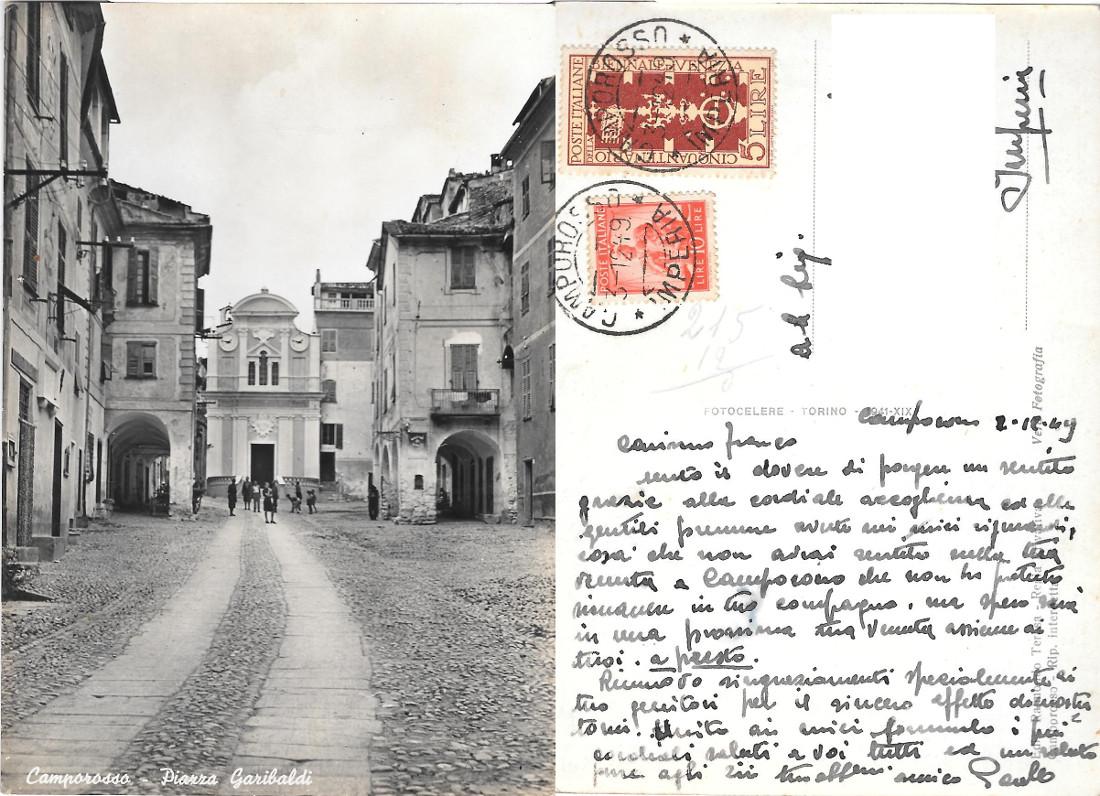 Camporosso - Piazza Garibaldi
POSTE ITALIANE
BIENNALE VENEZIA
CINQUANTENARIO
5 LIRE
CAMPOROSSO * IMPERIA *
POSTE ITALIANE
LIRE 10 LIRE
CAMPOROSSO * IMPERIA *
-12 49
Imperia
215
12
FOTOCELERE - TORINO - 1941-XIX
Vera Fotografia
Camporosso 2-12-49
Carissimo Franco
sento il dovere di porgere un sentito
grazie alla cordiale accoglienza ed alle
gentili premure avute nei miei riguardi,
cosa che non avrai sentito nella tua
venuta a Camporosso che non ho potuto
rimanere in tua compagnia, ma spero sarà
in una prossima tua venuta assieme ai
tuoi. a presto.
Rinnovo ringraziamenti specialmente ai
tuoi genitori per il sincero affetto dimostra
tomi. Unito ai miei formulo i più
cordiali saluti a voi tutti ed un saluto
pure agli zii tuo amico